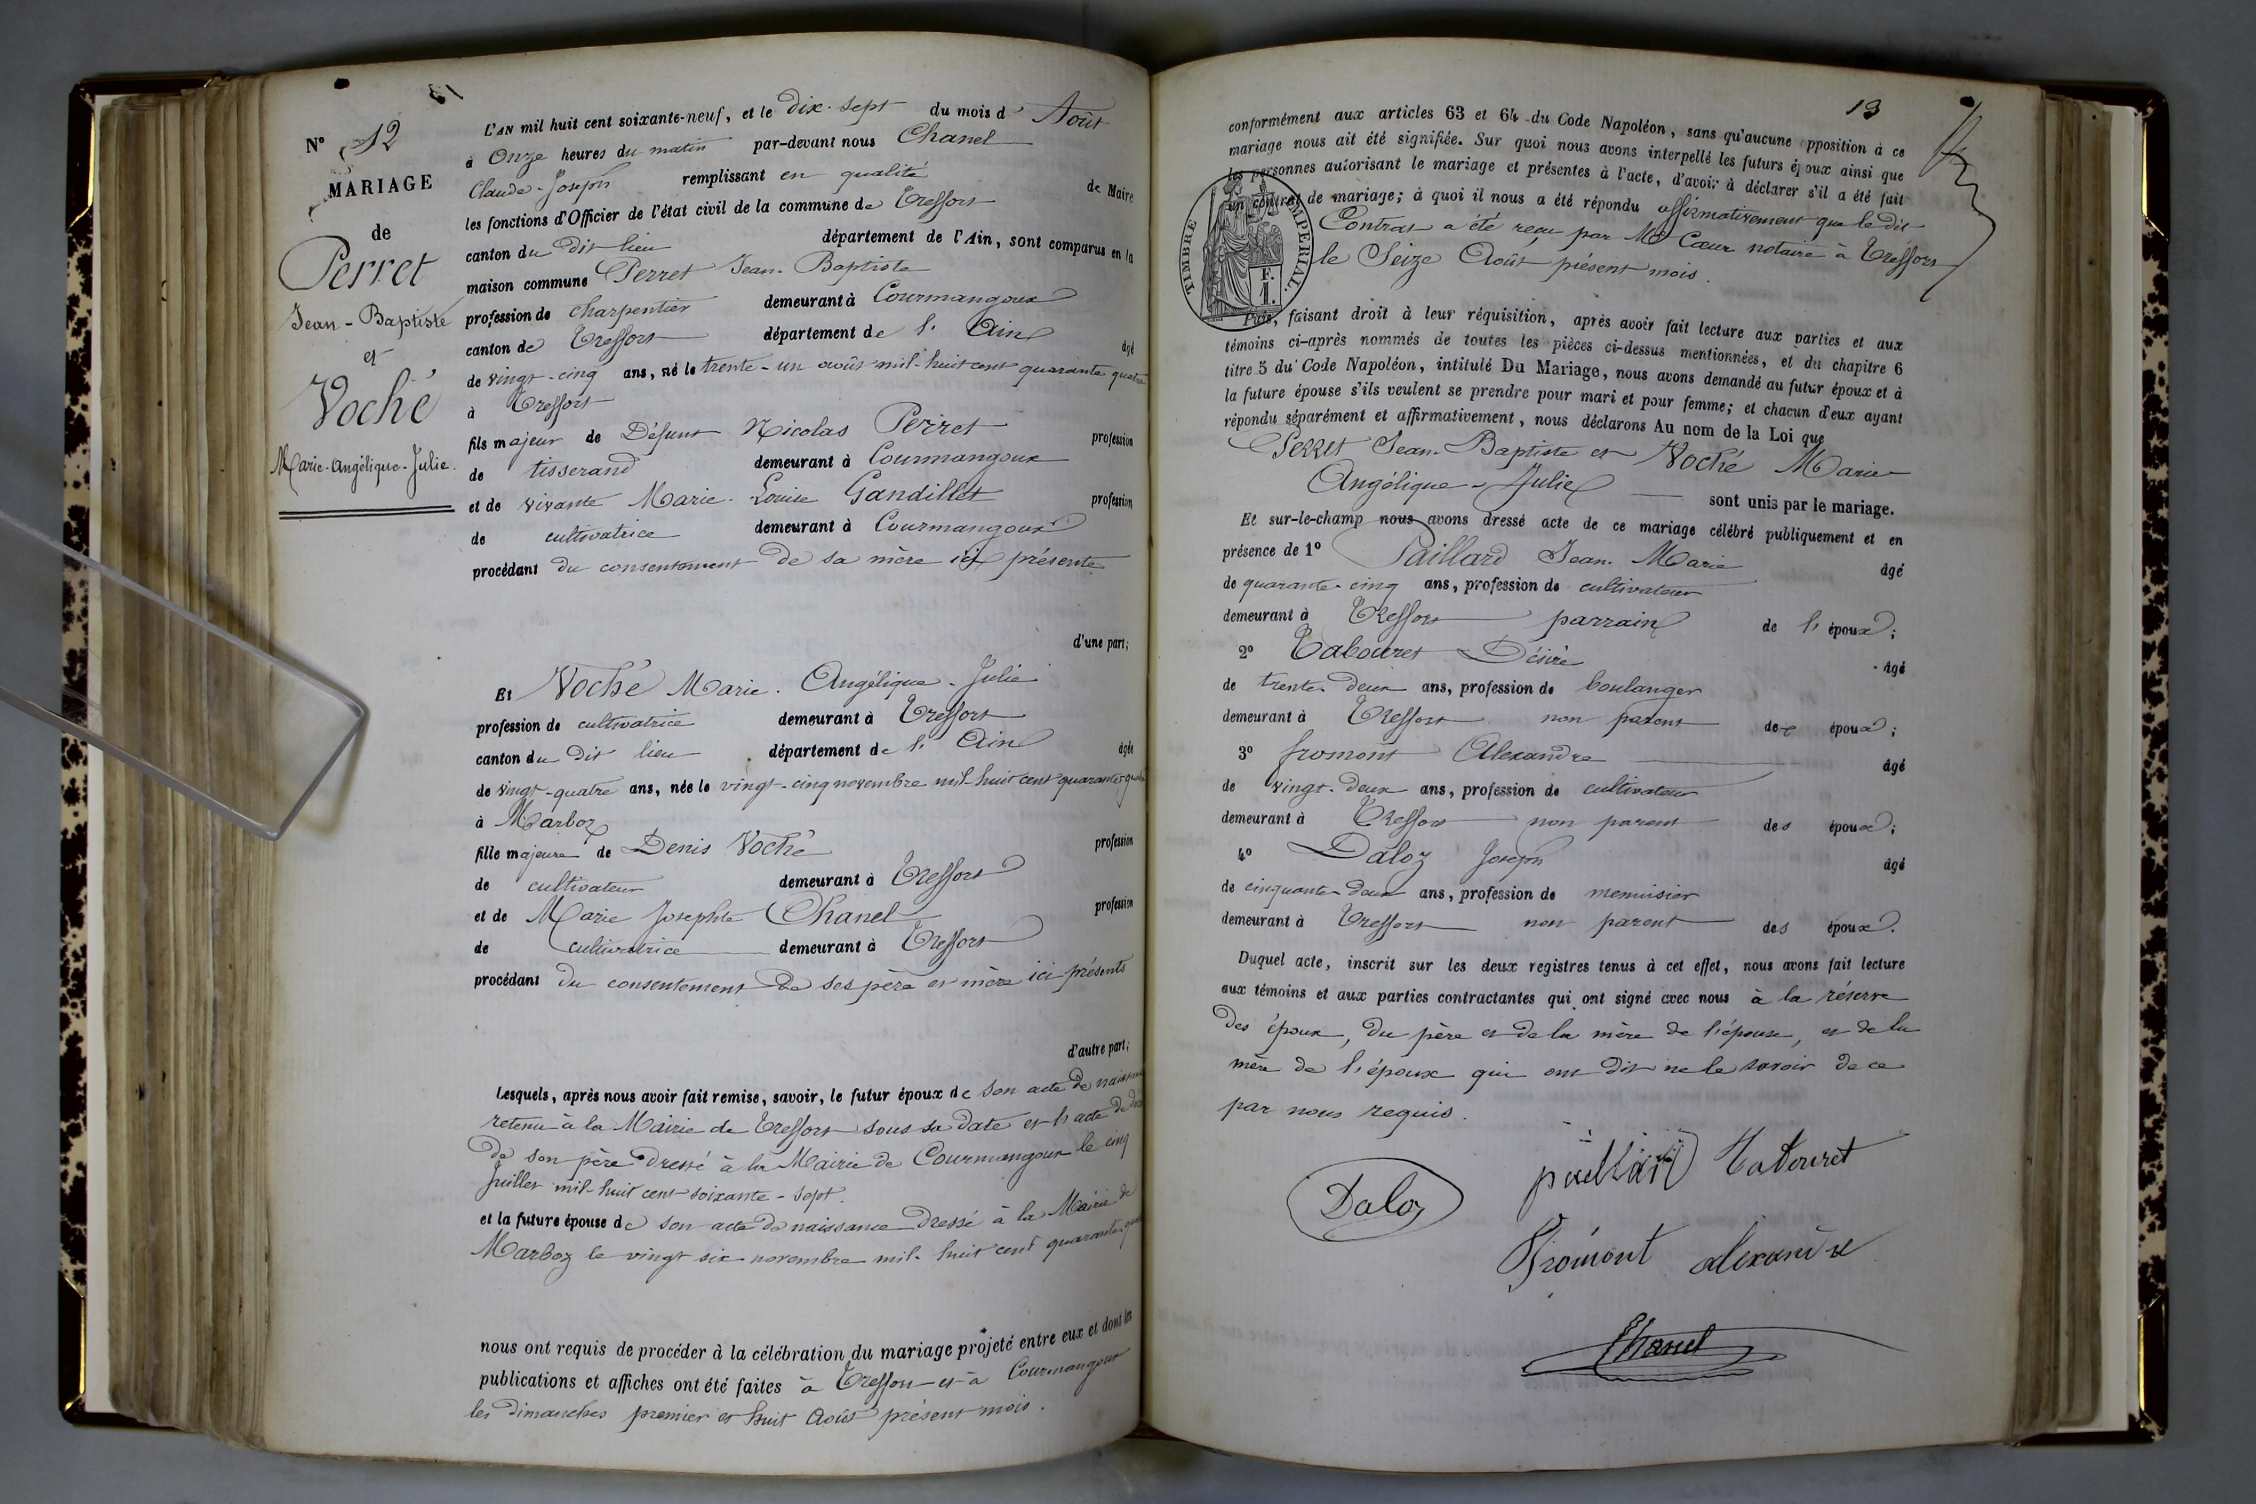 13
N° 12
MARIAGE
de
Perret
Jean-Baptiste
et
Voché
Marie-Angélique-Julie.
L'AN mil huit cent soixante-neuf, et le dix-sept du mois d'Août
à Onze heures du matin par-devant nous Chanel
Claude-Joseph remplissant en qualité de Maire
les fonctions d'Officier de l'état civil de la commune de Treffort
canton du dit lieu département de l'Ain, sont comparus en la
maison commune Perret Jean-Baptiste
profession de charpentier demeurant à Courmangoux
canton de Treffort département de l'Ain âgé
de vingt-cinq ans, né le trente-un août mil-huit cent quarante quatre
à Treffort
fils majeur de Défunt Nicolas Perret profession
de tisserand demeurant à Courmangoux
et de vivante Marie-Louise Gandillet profession
de cultivatrice demeurant à Courmangoux
procédant du consentement de sa mère ici présente
d'une part;
Et Voché Marie-Angélique-Julie
profession de cultivatrice demeurant à Treffort
canton du dit lieu département de l'Ain âgée
de vingt-quatre ans, née le vingt-cinq novembre mil-huit cent quarante-quatre
à Marboz
fille majeure de Denis Voché profession
de cultivateur demeurant à Treffort
et de Marie Josephte Chanel profession
de cultivatrice demeurant à Treffort
procédant du consentement de ses père et mère ici présents
d'autre part;
Lesquels, après nous avoir fait remise, savoir, le futur époux de son acte de naissance
retenu à la Mairie de Treffort sous sa date et l'acte de décès
de son père dressé à la Mairie de Courmangoux le cinq
Juillet mil-huit cent-soixante-sept.
et la future épouse de son acte de naissance dressé à la Mairie de
Marboz le vingt six novembre mil-huit cent quarante-quatre
nous ont requis de procéder à la célébration du mariage projeté entre eux et dont les
publications et affiches ont été faites à Treffort et à Courmangoux
les dimanches premier et huit Août présent mois.
13
conformément aux articles 63 et 64 du Code Napoléon, sans qu'aucune opposition à ce
mariage nous ait été signifiée. Sur quoi nous avons interpellé les futurs époux ainsi que
les personnes autorisant le mariage et présentes à l'acte, d'avoir à déclarer s'il a été fait
un contrat de mariage; à quoi il nous a été répondu affirmativement que le dit
Contrat a été reçu par Me Cœur notaire à Treffort
le Seize Août présent mois.
TIMBRE IMPERIAL.
F.
1.
Puis, faisant droit à leur réquisition, après avoir fait lecture aux parties et aux
témoins ci-après nommés de toutes les pièces ci-dessus mentionnées, et du chapitre 6
titre 5 du Code Napoléon, intitulé Du Mariage, nous avons demandé au futur époux et à
la future épouse s'ils veulent se prendre pour mari et pour femme; et chacun d'eux ayant
répondu séparément et affirmativement, nous déclarons Au nom de la Loi que
Perret Jean-Baptiste et Voché Marie
Angélique-Julie sont unis par le mariage.
Et sur-le-champ nous avons dressé acte de ce mariage célébré publiquement et en
présence de 1° Paillard Jean-Marie âgé
de quarante-cinq ans, profession de cultivateur
demeurant à Treffort parrain de l'époux;
2° Tabouret Désiré âgé
de trente-deux ans, profession de boulanger
demeurant à Treffort non parent des époux;
3° fromont Alexandre âgé
de vingt-deux ans, profession de cultivateur
demeurant à Treffort non parent des époux;
4° Daloz Joseph âgé
de cinquante-deux ans, profession de menuisier
demeurant à Treffort non parent des époux.
Duquel acte, inscrit sur les deux registres tenus à cet effet, nous avons fait lecture
aux témoins et aux parties contractantes qui ont signé avec nous à la réserve
des époux, du père et de la mère de l'épouse, et de la
mère de l'époux qui ont dit ne le savoir de ce
par nous requis.
paillard Tabouret
Daloz
Fromont alexandre
Chanel